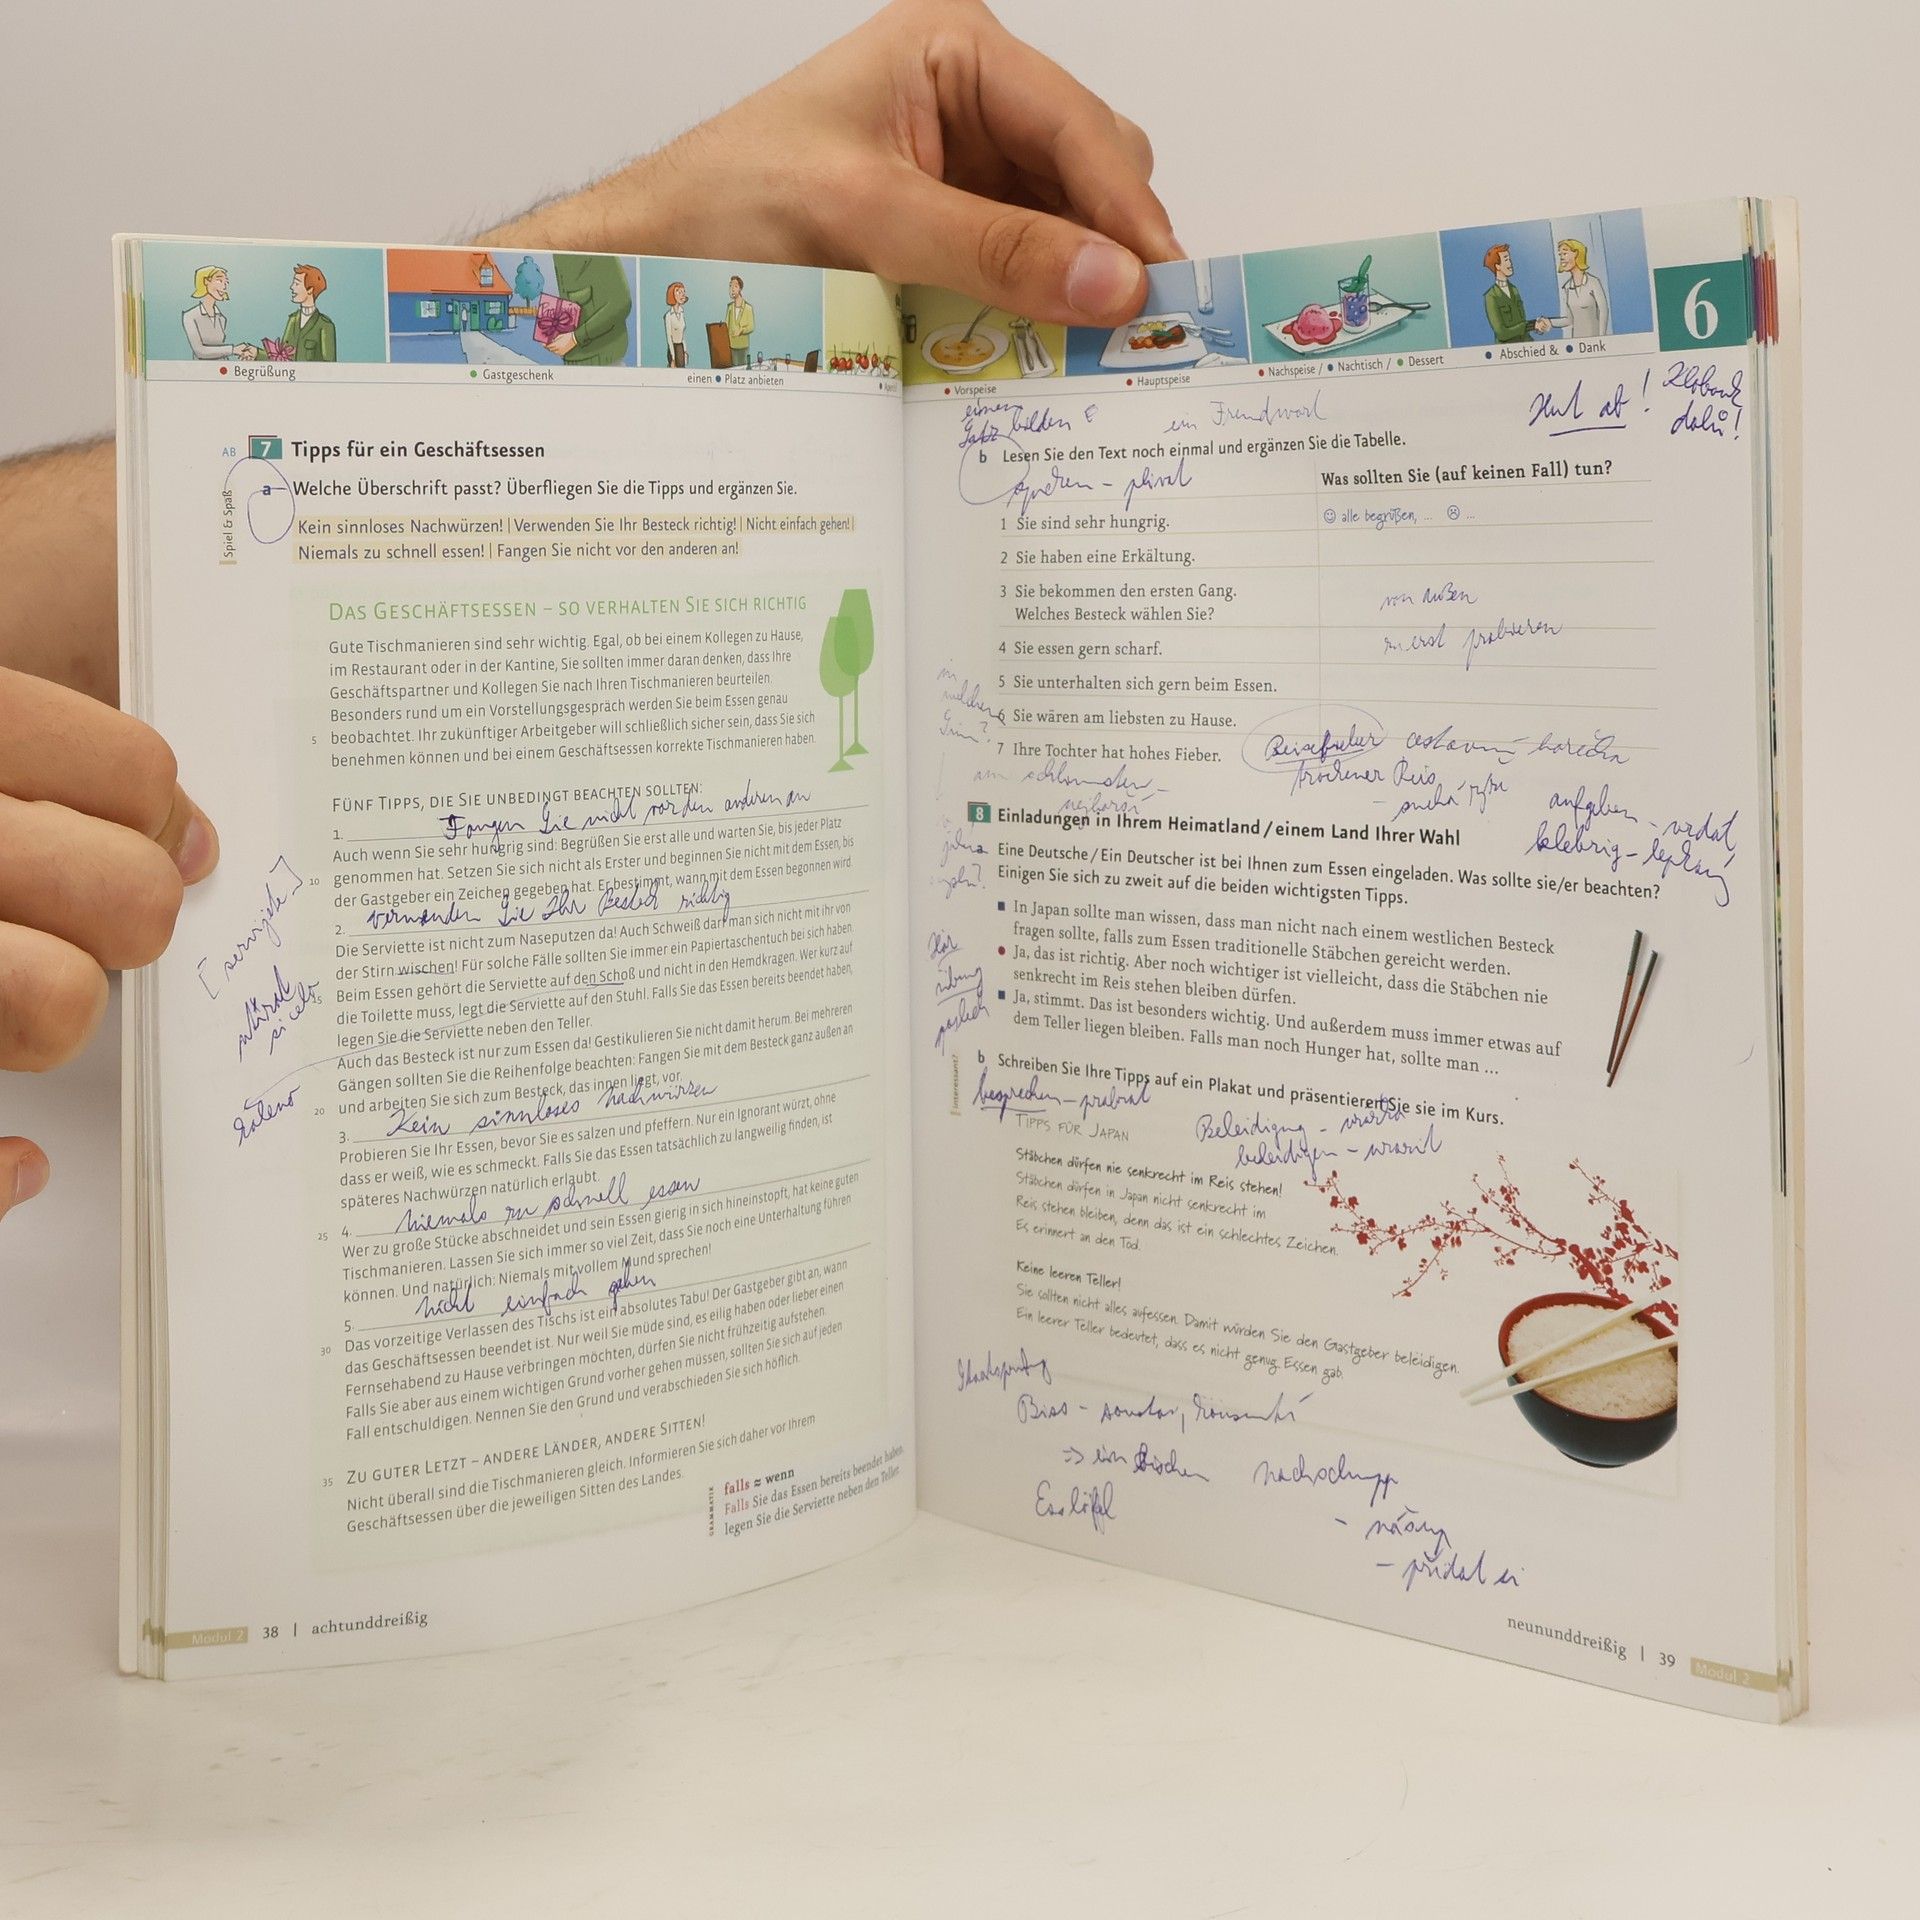 Begrüßung
Gastgeschenk
einen Platz anbieten
AB 7 Tipps für ein Geschäftsessen
Spiel & Spaß
a Welche Überschrift passt? Überfliegen Sie die Tipps und ergänzen Sie.
Kein sinnloses Nachwürzen! | Verwenden Sie Ihr Besteck richtig! | Nicht einfach gehen! |
Niemals zu schnell essen! | Fangen Sie nicht vor den anderen an!
DAS GESCHÄFTSESSEN – SO VERHALTEN SIE SICH RICHTIG
Gute Tischmanieren sind sehr wichtig. Egal, ob bei einem Kollegen zu Hause,
im Restaurant oder in der Kantine, Sie sollten immer daran denken, dass Ihre
Geschäftspartner und Kollegen Sie nach Ihren Tischmanieren beurteilen.
Besonders rund um ein Vorstellungsgespräch werden Sie beim Essen genau
5 beobachtet. Ihr zukünftiger Arbeitgeber will schließlich sicher sein, dass Sie sich
benehmen können und bei einem Geschäftsessen korrekte Tischmanieren haben.
FÜNF TIPPS, DIE SIE UNBEDINGT BEACHTEN SOLLTEN:
1. Fangen Sie nicht vor den anderen an
Auch wenn Sie sehr hungrig sind: Begrüßen Sie erst alle und warten Sie, bis jeder Platz
10 genommen hat. Setzen Sie sich nicht als Erster und beginnen Sie nicht mit dem Essen, bis
der Gastgeber ein Zeichen gegeben hat. Er bestimmt, wann mit dem Essen begonnen wird.
2. verwenden Sie Ihr Besteck richtig
Die Serviette ist nicht zum Naseputzen da! Auch Schweiß darf man sich nicht mit ihr von
der Stirn wischen! Für solche Fälle sollten Sie immer ein Papiertaschentuch bei sich haben.
15 Beim Essen gehört die Serviette auf den Schoß und nicht in den Hemdkragen. Wer kurz auf
die Toilette muss, legt die Serviette auf den Stuhl. Falls Sie das Essen bereits beendet haben,
legen Sie die Serviette neben den Teller.
Auch das Besteck ist nur zum Essen da! Gestikulieren Sie nicht damit herum. Bei mehreren
Gängen sollten Sie die Reihenfolge beachten: Fangen Sie mit dem Besteck ganz außen an
20 und arbeiten Sie sich zum Besteck, das innen liegt, vor.
3. Kein sinnloses Nachwürzen
Probieren Sie Ihr Essen, bevor Sie es salzen und pfeffern. Nur ein Ignorant würzt, ohne
dass er weiß, wie es schmeckt. Falls Sie das Essen tatsächlich zu langweilig finden, ist
späteres Nachwürzen natürlich erlaubt.
25 4. Niemals zu schnell essen
Wer zu große Stücke abschneidet und sein Essen gierig in sich hineinstopft, hat keine guten
Tischmanieren. Lassen Sie sich immer so viel Zeit, dass Sie noch eine Unterhaltung führen
können. Und natürlich: Niemals mit vollem Mund sprechen!
5. Nicht einfach gehen
30 Das vorzeitige Verlassen des Tischs ist ein absolutes Tabu! Der Gastgeber gibt an, wann
das Geschäftsessen beendet ist. Nur weil Sie müde sind, es eilig haben oder lieber einen
Fernsehabend zu Hause verbringen möchten, dürfen Sie nicht frühzeitig aufstehen.
Falls Sie aber aus einem wichtigen Grund vorher gehen müssen, sollten Sie sich auf jeden
Fall entschuldigen. Nennen Sie den Grund und verabschieden Sie sich höflich.
35 ZU GUTER LETZT – ANDERE LÄNDER, ANDERE SITTEN!
Nicht überall sind die Tischmanieren gleich. Informieren Sie sich daher vor Ihrem
Geschäftsessen über die jeweiligen Sitten des Landes.
GRAMMATIK
falls ≈ wenn
Falls Sie das Essen bereits beendet haben,
legen Sie die Serviette neben den Teller.
koleno
Modul 2 38 | achtunddreißig
Vorspeise
Hauptspeise
Nachspeise / Nachtisch / Dessert
Abschied & Dank
6
einen
Satz bilden
ein Fremdwort
Hut ab!
Klobouk
dolů!
b Lesen Sie den Text noch einmal und ergänzen Sie die Tabelle.
Was sollten Sie (auf keinen Fall) tun?
1 Sie sind sehr hungrig.
☺ alle begrüßen, ... ☹ ...
2 Sie haben eine Erkältung.
3 Sie bekommen den ersten Gang.
Welches Besteck wählen Sie?
von außen
4 Sie essen gern scharf.
zuerst probieren
5 Sie unterhalten sich gern beim Essen.
6 Sie wären am liebsten zu Hause.
7 Ihre Tochter hat hohes Fieber.
Reisefieber cestovní horečka
trockener Reis
- suchá rýže
in
welchem
Sinn?
am schlimmsten
nejhorší
aufgeben - vzdát
klebrig - lepkavý
8 Einladungen in Ihrem Heimatland / einem Land Ihrer Wahl
a Eine Deutsche / Ein Deutscher ist bei Ihnen zum Essen eingeladen. Was sollte sie/er beachten?
Einigen Sie sich zu zweit auf die beiden wichtigsten Tipps.
■ In Japan sollte man wissen, dass man nicht nach einem westlichen Besteck
fragen sollte, falls zum Essen traditionelle Stäbchen gereicht werden.
● Ja, das ist richtig. Aber noch wichtiger ist vielleicht, dass die Stäbchen nie
senkrecht im Reis stehen bleiben dürfen.
■ Ja, stimmt. Das ist besonders wichtig. Und außerdem muss immer etwas auf
dem Teller liegen bleiben. Falls man noch Hunger hat, sollte man ...
Hör
übung
poslech
Interessant?
b Schreiben Sie Ihre Tipps auf ein Plakat und präsentieren Sie sie im Kurs.
besprechen - probrat
Beleidigung - urážka
beleidigen - urazit
TIPPS FÜR JAPAN
Stäbchen dürfen nie senkrecht im Reis stehen!
Stäbchen dürfen in Japan nicht senkrecht im
Reis stehen bleiben, denn das ist ein schlechtes Zeichen.
Es erinnert an den Tod.
Keine leeren Teller!
Sie sollten nicht alles aufessen. Damit würden Sie den Gastgeber beleidigen.
Ein leerer Teller bedeutet, dass es nicht genug Essen gab.
Biss - sousto, kousnutí
=> ein Bisschen
Esslöffel
- přidat si
neununddreißig | 39 Modul 2